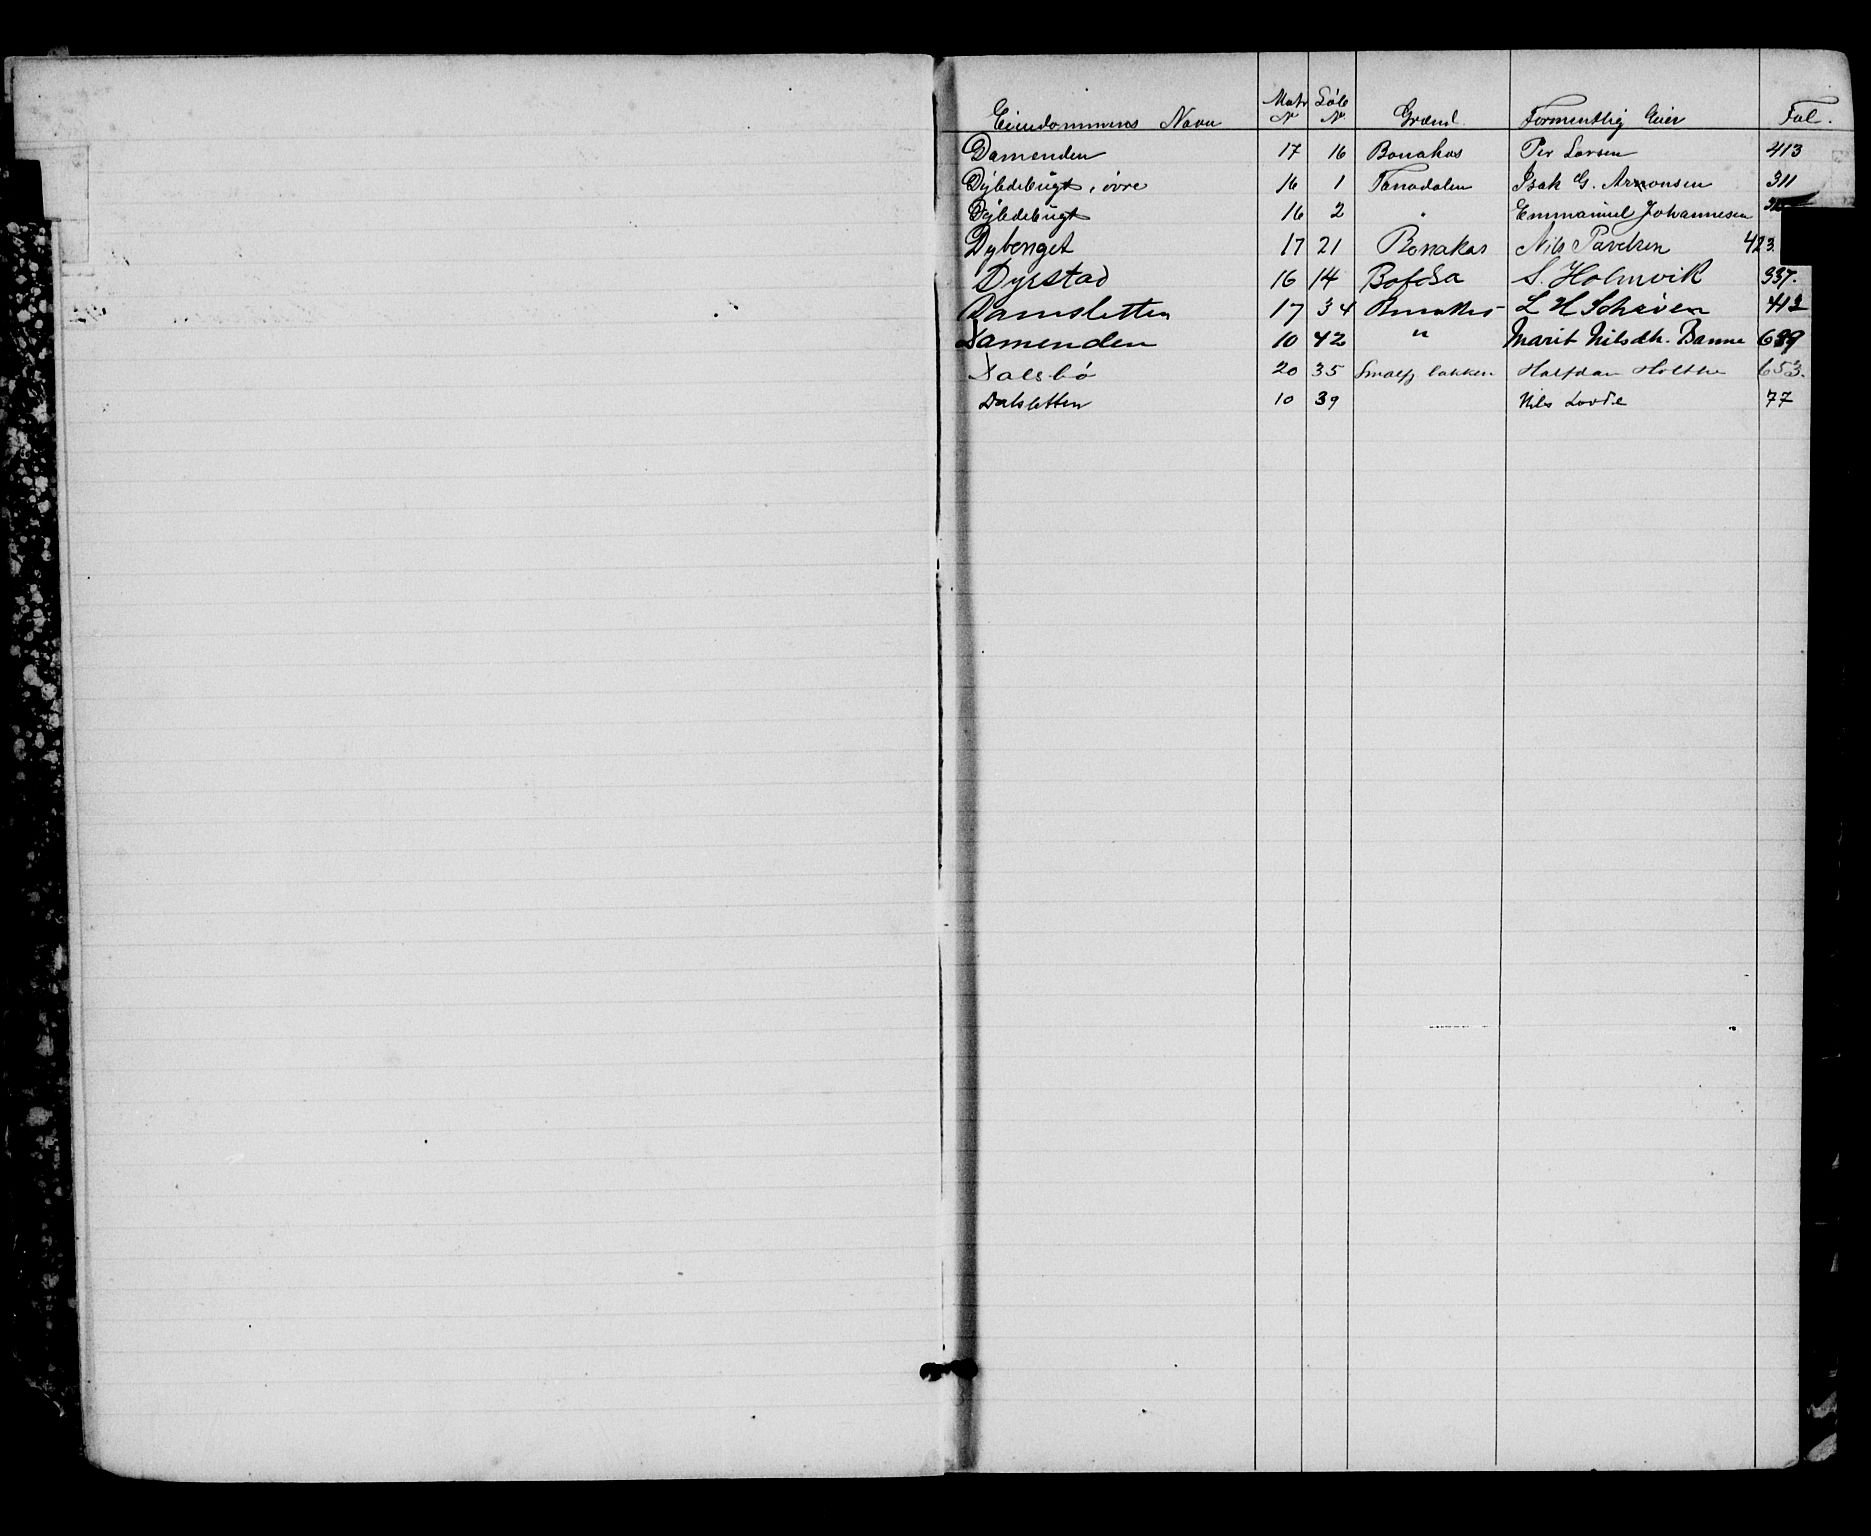 Eiendommens Navn Matr N Löb N. Grænd. Formentlig Eier Fol.
Damenden 17 16 Bonakas Per Larsen 413
Dybdebugt, övre 16 1 Tanadalen Isak G. Aronsen 311
Dybdebugt 16 2 " Emmanuel Johannesen
Dybenget 17 21 Bonakas Nils Pavelsen 423.
Dyrstad 16 14 S. Holmvik 337.
Damsletten 17 34 L H Schiven 413
Damenden 10 42 " Marit Nilsdtr. Banne 639
Dalsbö 20 35 Halfdan Holthe 653.
Dalsletten 10 39 Nils Lovde 77